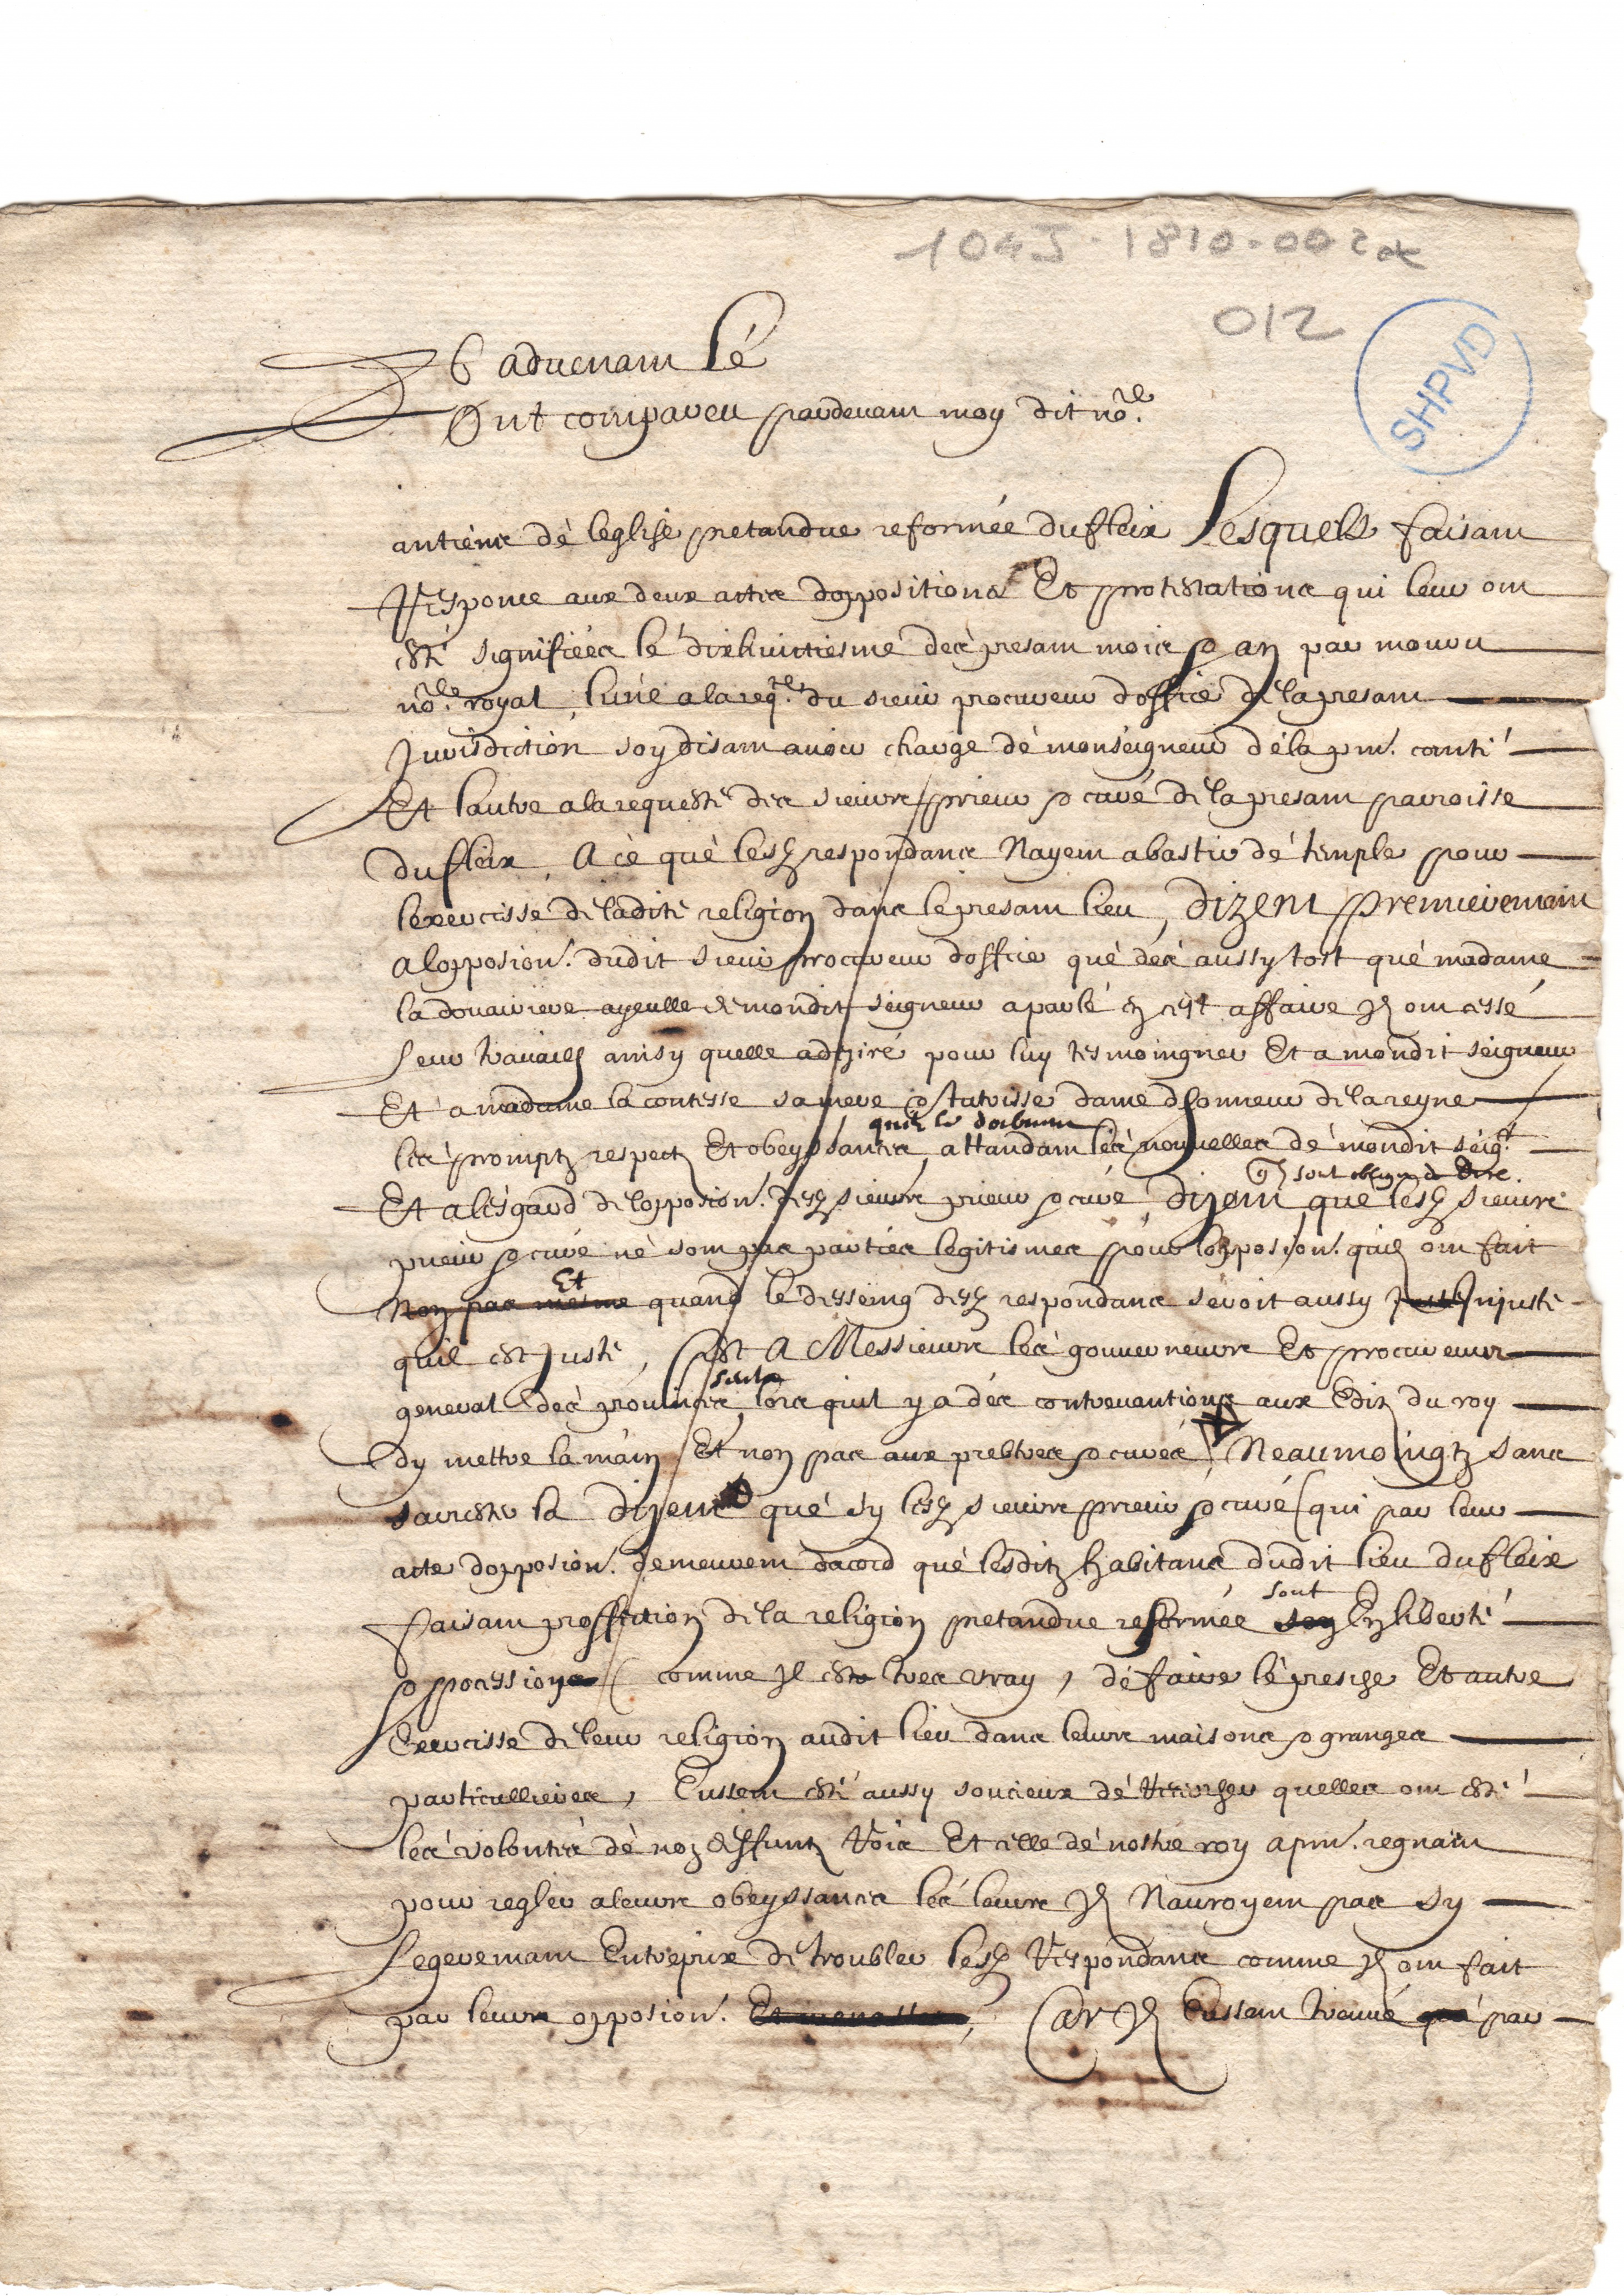 104J-1810-002a
012
SHPVD
Et advenant le
Ont compareu pardevant moy dit no.re
antiens de leglise pretandue reformée dufleix Lesquels faisant
Response aux deux actes doppositions Et protestations qui leur ont
esté signifiées le dixhuictiesme des presant mois & an par
no.re royal, lune ala req.te du sieur procureur doffice de la presant
Jurisdiction soy disant avoir charge de monseigneur de la pnt. comté
Et lautre ala requeste des sieurs prieur & curé de la presant parroisse
dufleix, A ce que lesd respondans Nayent abastir de temple pour
lexercisse de ladite religion dans le presant lieu, dizent premieremant
alopposion. dudit sieur procureur doffice que des aussy tost que madame
la douairiere ayeulle de mondit seigneur a parlé en cest affaire Ils ont cessé
leur travail ainsy quelle a dezire pour luy tesmoingner Et a mondit seigneur
Et a madame la contesse sa mere & tutrisse dame dhonneur de la reyne
quilz luy doibvent
les promptz respectz Et obeyssances, attandant les nouvelles de mondit seig.r
quilz sont obligés de dire.
Et alesgard de lopposion. desd sieurs prieur & curé, dizent que lesd sieurs
prieur & curé ne sont pas parties legitismes pour lopposion. quilz ont fait
Et
Non pas mesme quand le desseing desd respondans seroit aussy juste Injuste
quil est juste, Cest A Messieurs les gouverneurs Et procureurs
seuls
general des provinces, lors quil y a des contrevantions aux Editz du roy
dy mettre la main Et non pas aux prebtres & curés, Neaumoingtz sans
sarester la dizent que sy lesd sieurs prieur & curé (qui par leur
acte dopposion. demeurent dacord que lesditz habitans dudit lieu dufleix
sont
faisant proffession de la religion pretandue reformée son En liberté
& pocession (comme Il est tres vray, de faire le presche Et autre
Exercisse de leur religion audit lieu dans leurs maisons & granges
particullieres, Eussent esté aussy soucieux de rechercher quelles ont esté
les volontés de noz deffuntz Rois Et celle de nostre roy apnt. regnant
pour regler aleurs obeyssances les leurs Ilz Nauroyent pas sy
legeremant Entrepris de troubler lesd Respondans comme Ilz ont fait
par leurs opposion. Et Car Ilz Eussent trouvé que par